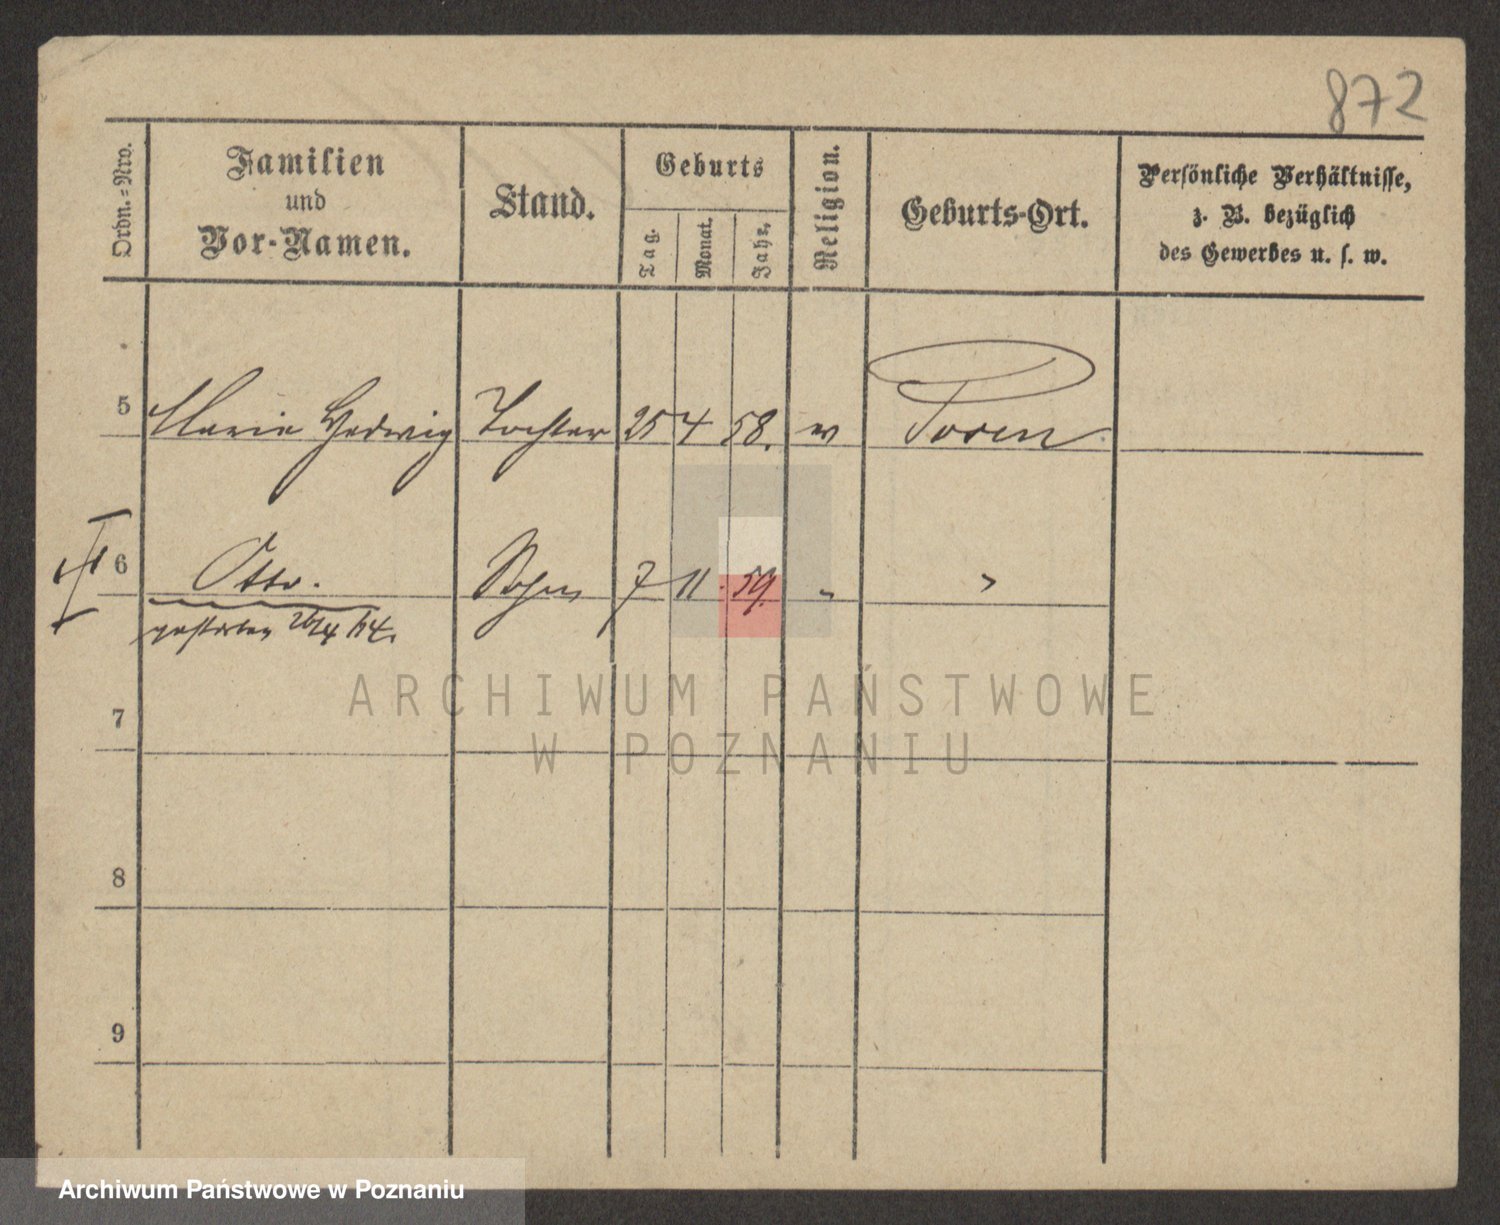 872
Ordn.-Nro.
Familien
und
Vor-Namen.
Stand.
Geburts
Tag.
Monat.
Jahr.
Religion.
Geburts-Ort.
Persönliche Verhältnisse,
z. B. bezüglich
des Gewerbes u. s. w.
5 Marie Hedwig Tochter 25 4 58. Posen
6 Otto. Sohn 7 11. 59. "
gestorben 20/4 64.
7
8
9
ARCHIWUM PAŃSTWOWE
W POZNANIU
Archiwum Państwowe w Poznaniu